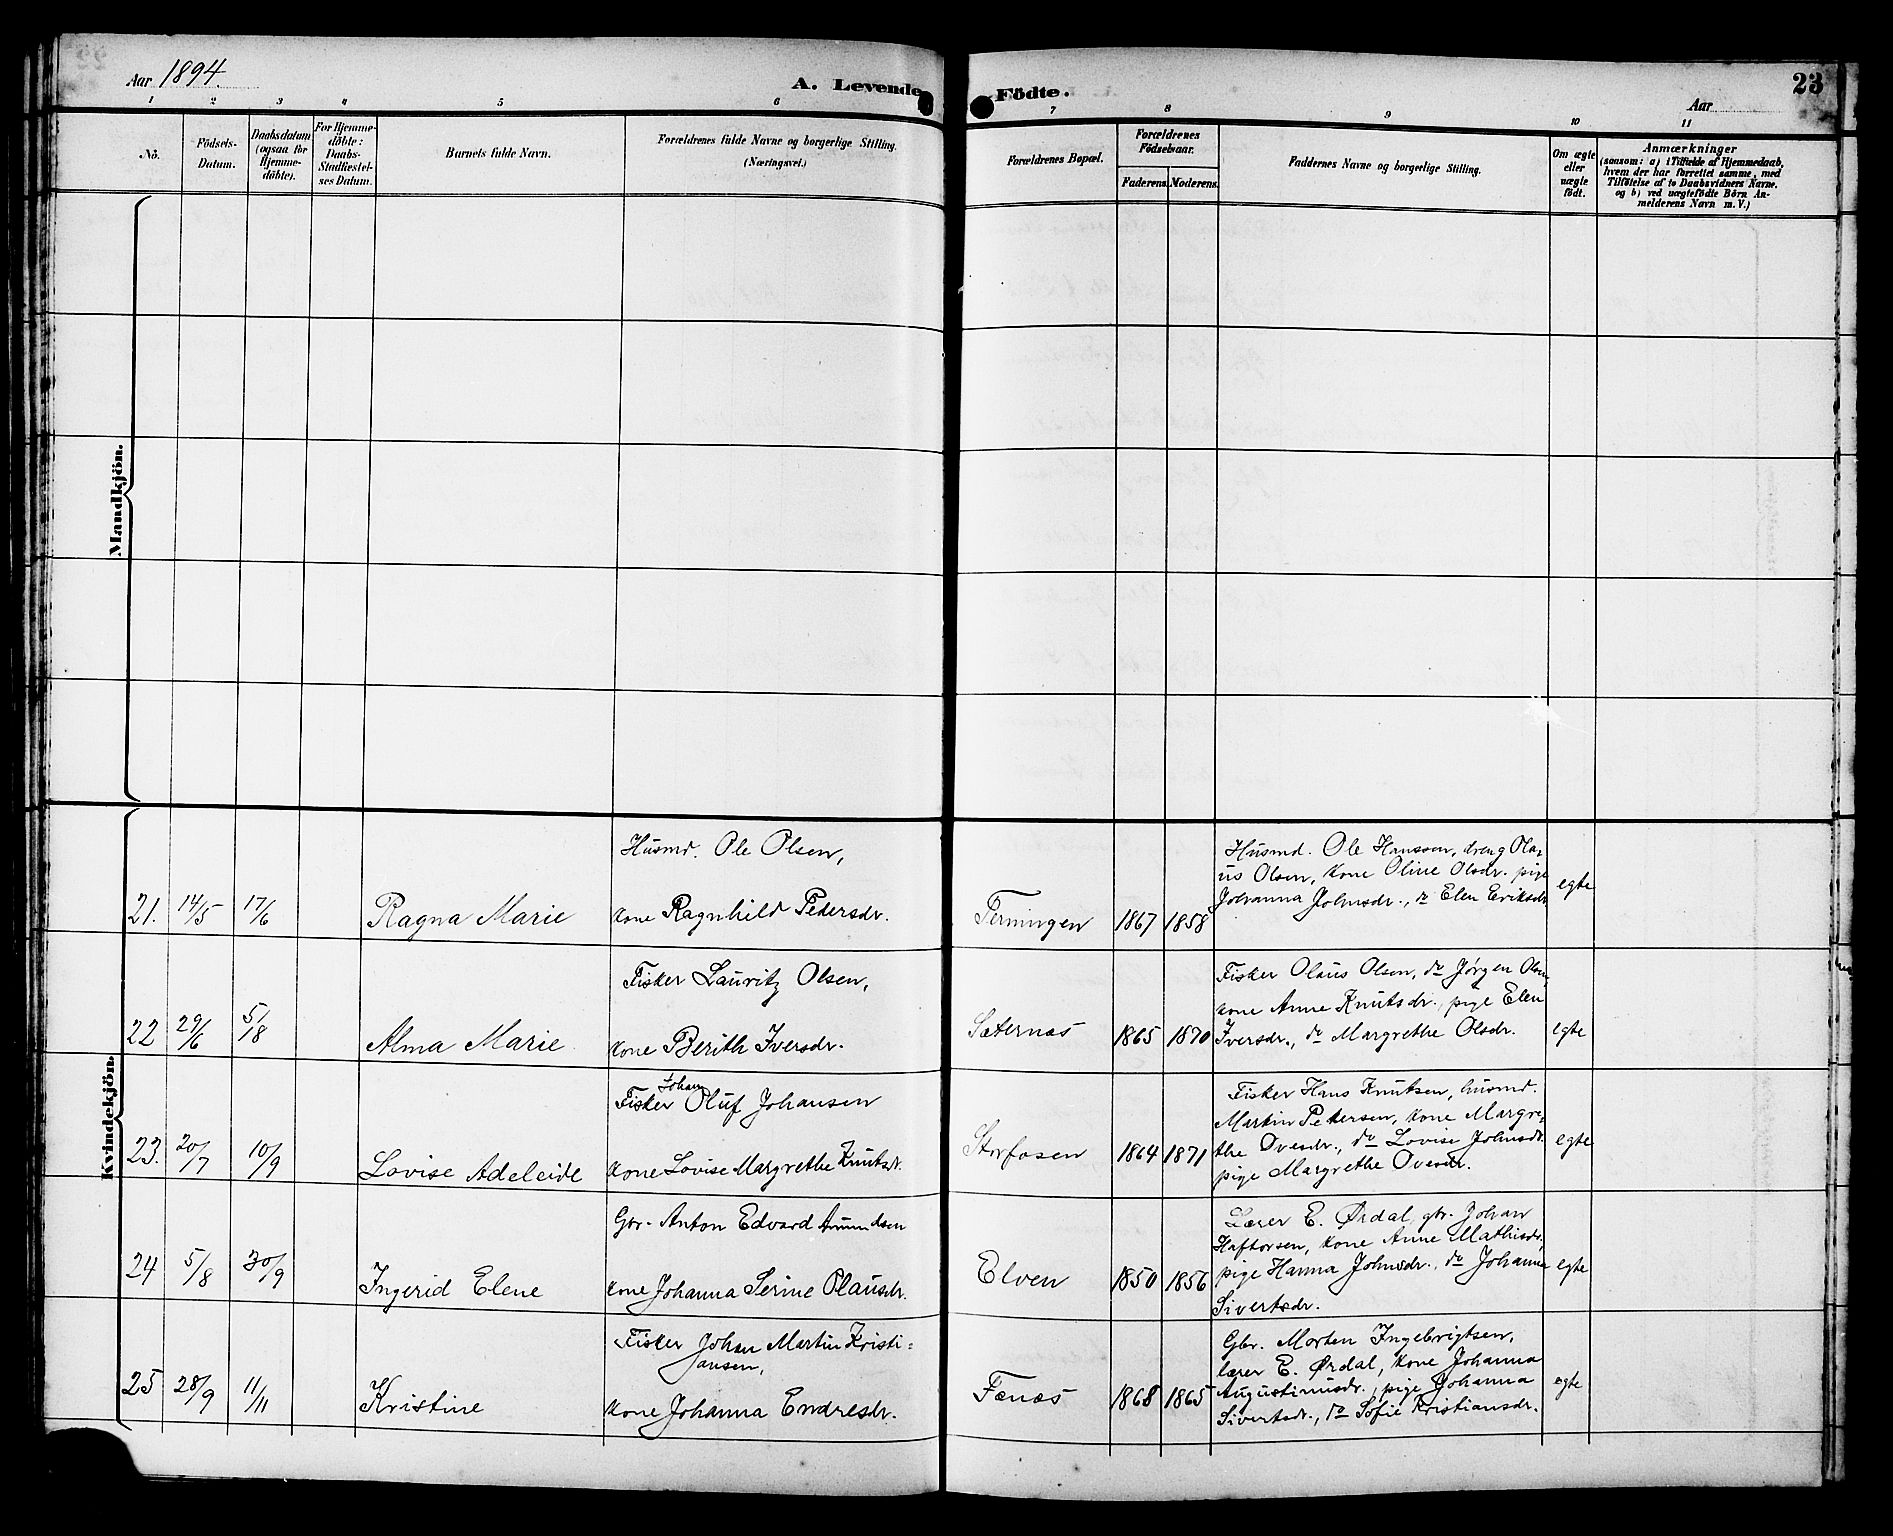 Aar 1894.
A. Levende Födte.
23
Aar
1 2 3 4 5 6 7 8 9 10 11
No.
Födsels-
Datum.
Daabsdatum
(ogsaa for
Hjemme-
döbte).
For Hjemme-
döbte:
Daabs-
Stadfæstel-
ses Datum.
Barnets fulde Navn.
Forældrenes fulde Navne og borgerlige Stilling.
(Næringsvei.)
Forældrenes Bopæl.
Forældrenes
Födselsaar.
Faderens. Moderens.
Faddernes Navne og borgerlige Stilling.
Om ægte
eller
uægte
födt.
Anmærkninger
(saasom: a) i Tilfælde af Hjemmedaab,
hvem der har forrettet samme, med
Tilföielse af to Daabsvidners Navne.
og b) ved uægtefödte Börn An-
melderens Navn m. V.)
Mandkjön.
Kvindekjön.
21. 14/5 17/6 Ragna Marie
Husmd. Ole Olsen,
kone Ragnhild Pedersdr.
Terningen 1867 1858
Husmd. Ole Hanssen, dreng Ola-
us Olsen, kone Oline Olsdr. pige
Johanna Johnsdr., do Elen Eriksdr.
egte
22 29/6 5/18 Alma Marie
Fisker Lauritz Olsen,
kone Berith Iversdr.
Sæternæs 1865 1870
Fisker Olaus Olsen, do Jørgen Olsen,
kone Anne Knutsdr., pige Elen
Iversdr., do Margrethe Olsdr.
egte
23. 20/7 10/9 Lovise Adeleide
Johan
Fisker Oluf Johansen
kone Lovise Margrethe Knutsdr.
Storfosen 1864 1871
Fisker Hans Knutsen, husmd.
Martin Petersen, kone Margre-
the Ovesdr., do Lovise Johnsdr.
pige Margrethe Ovesdr.
egte
24 5/8 30/9 Ingerid Elene
Gbr. Anton Edvard Amundsen
kone Johanna Serine Olausdr.
Elven 1850 1856
Lærer E. Ørdal, gbr. Johan
Haftorsen, kone Anne Mathisdr,
pige Hanna Johnsdr., do Johanna
Sivertsdr.
egte
25 28/9 11/11 Kristine
Fisker Johan Martin Kristi-
ansen,
kone Johanna Endresdr.
Fænæs 1868 1865
Gbr. Morten Ingebrigtsen,
lærer E. Ørdal, kone Johanna
Augustinusdr., pige Johanna
Sivertsdr., do Sofie Kristiansdr.
egte